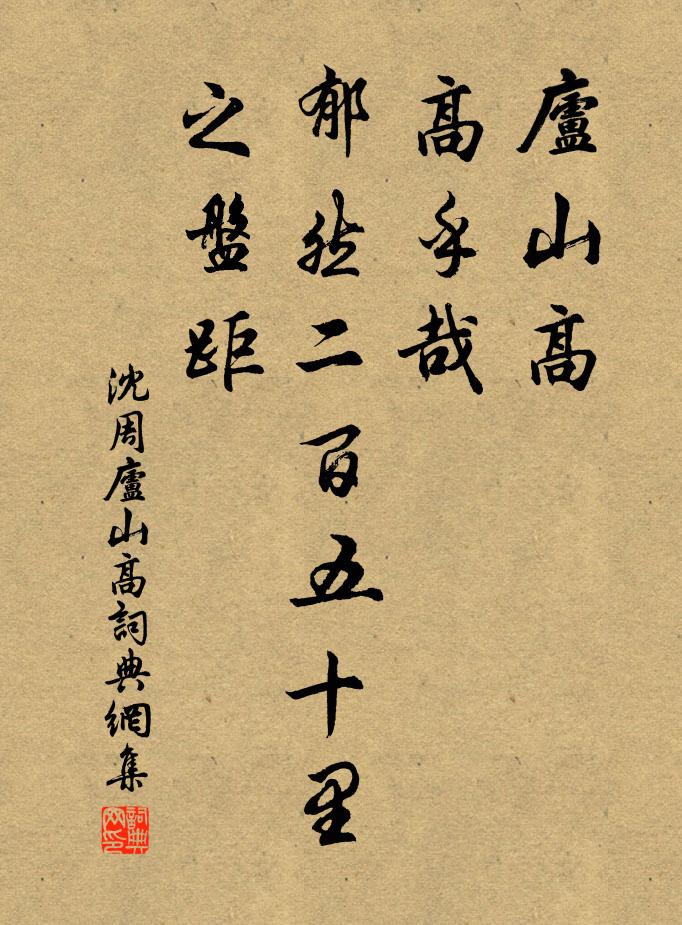 廬山高
高乎哉
郁然二百五十里
之盤距
沈周廬山高詞典網集
詞典网印